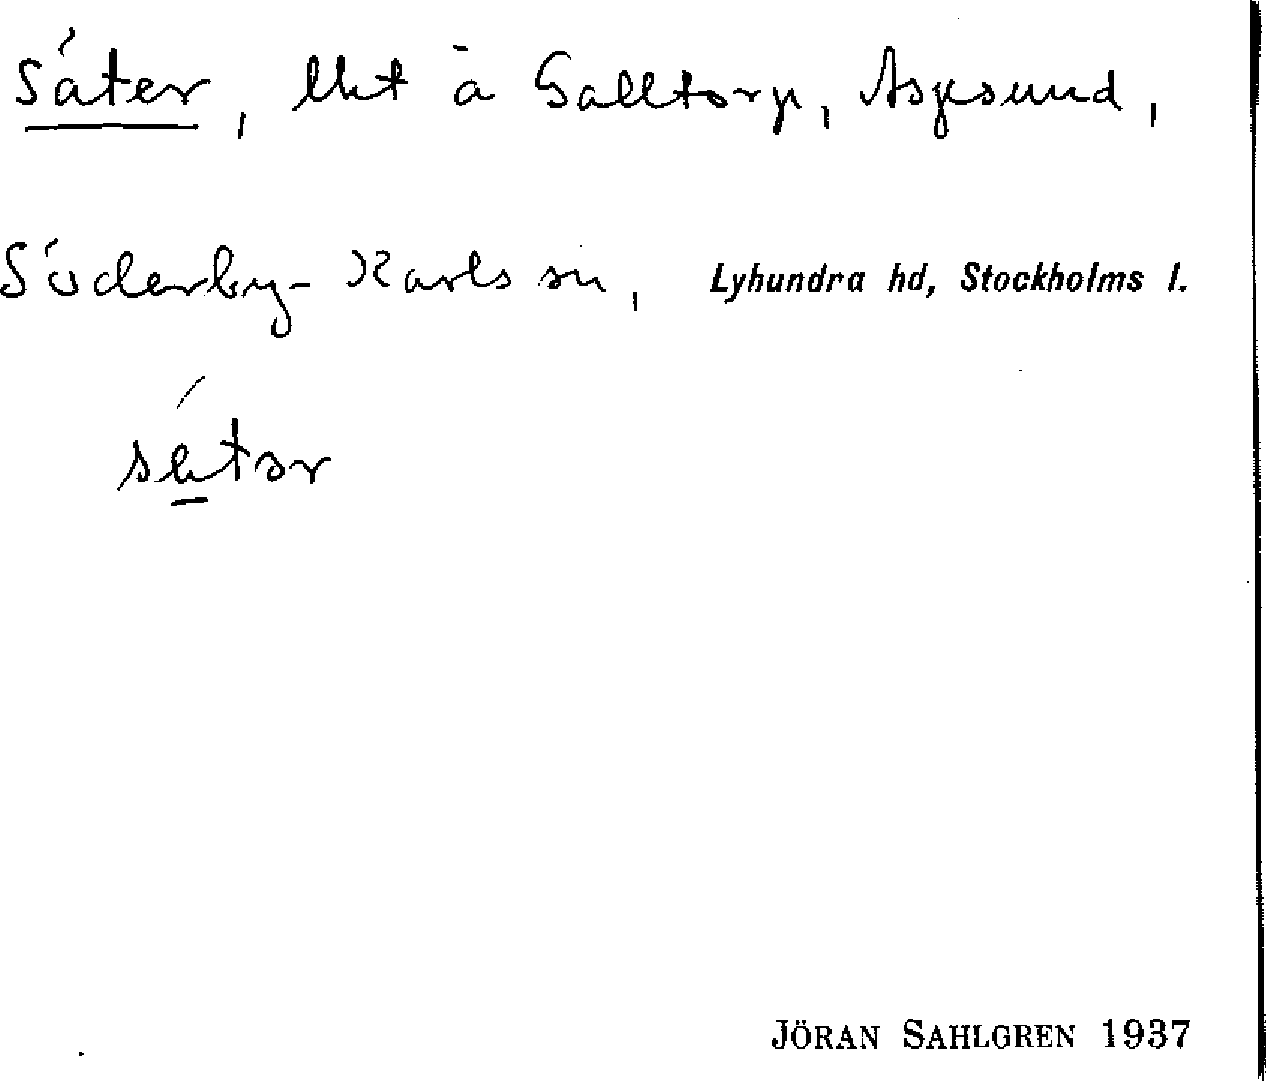 Säter, lht å Galltorp, Aspsund,
Söderby-Karls sn, Lyhundra hd, Stockholms l.
sätər
JÖRAN SAHLGREN 1937